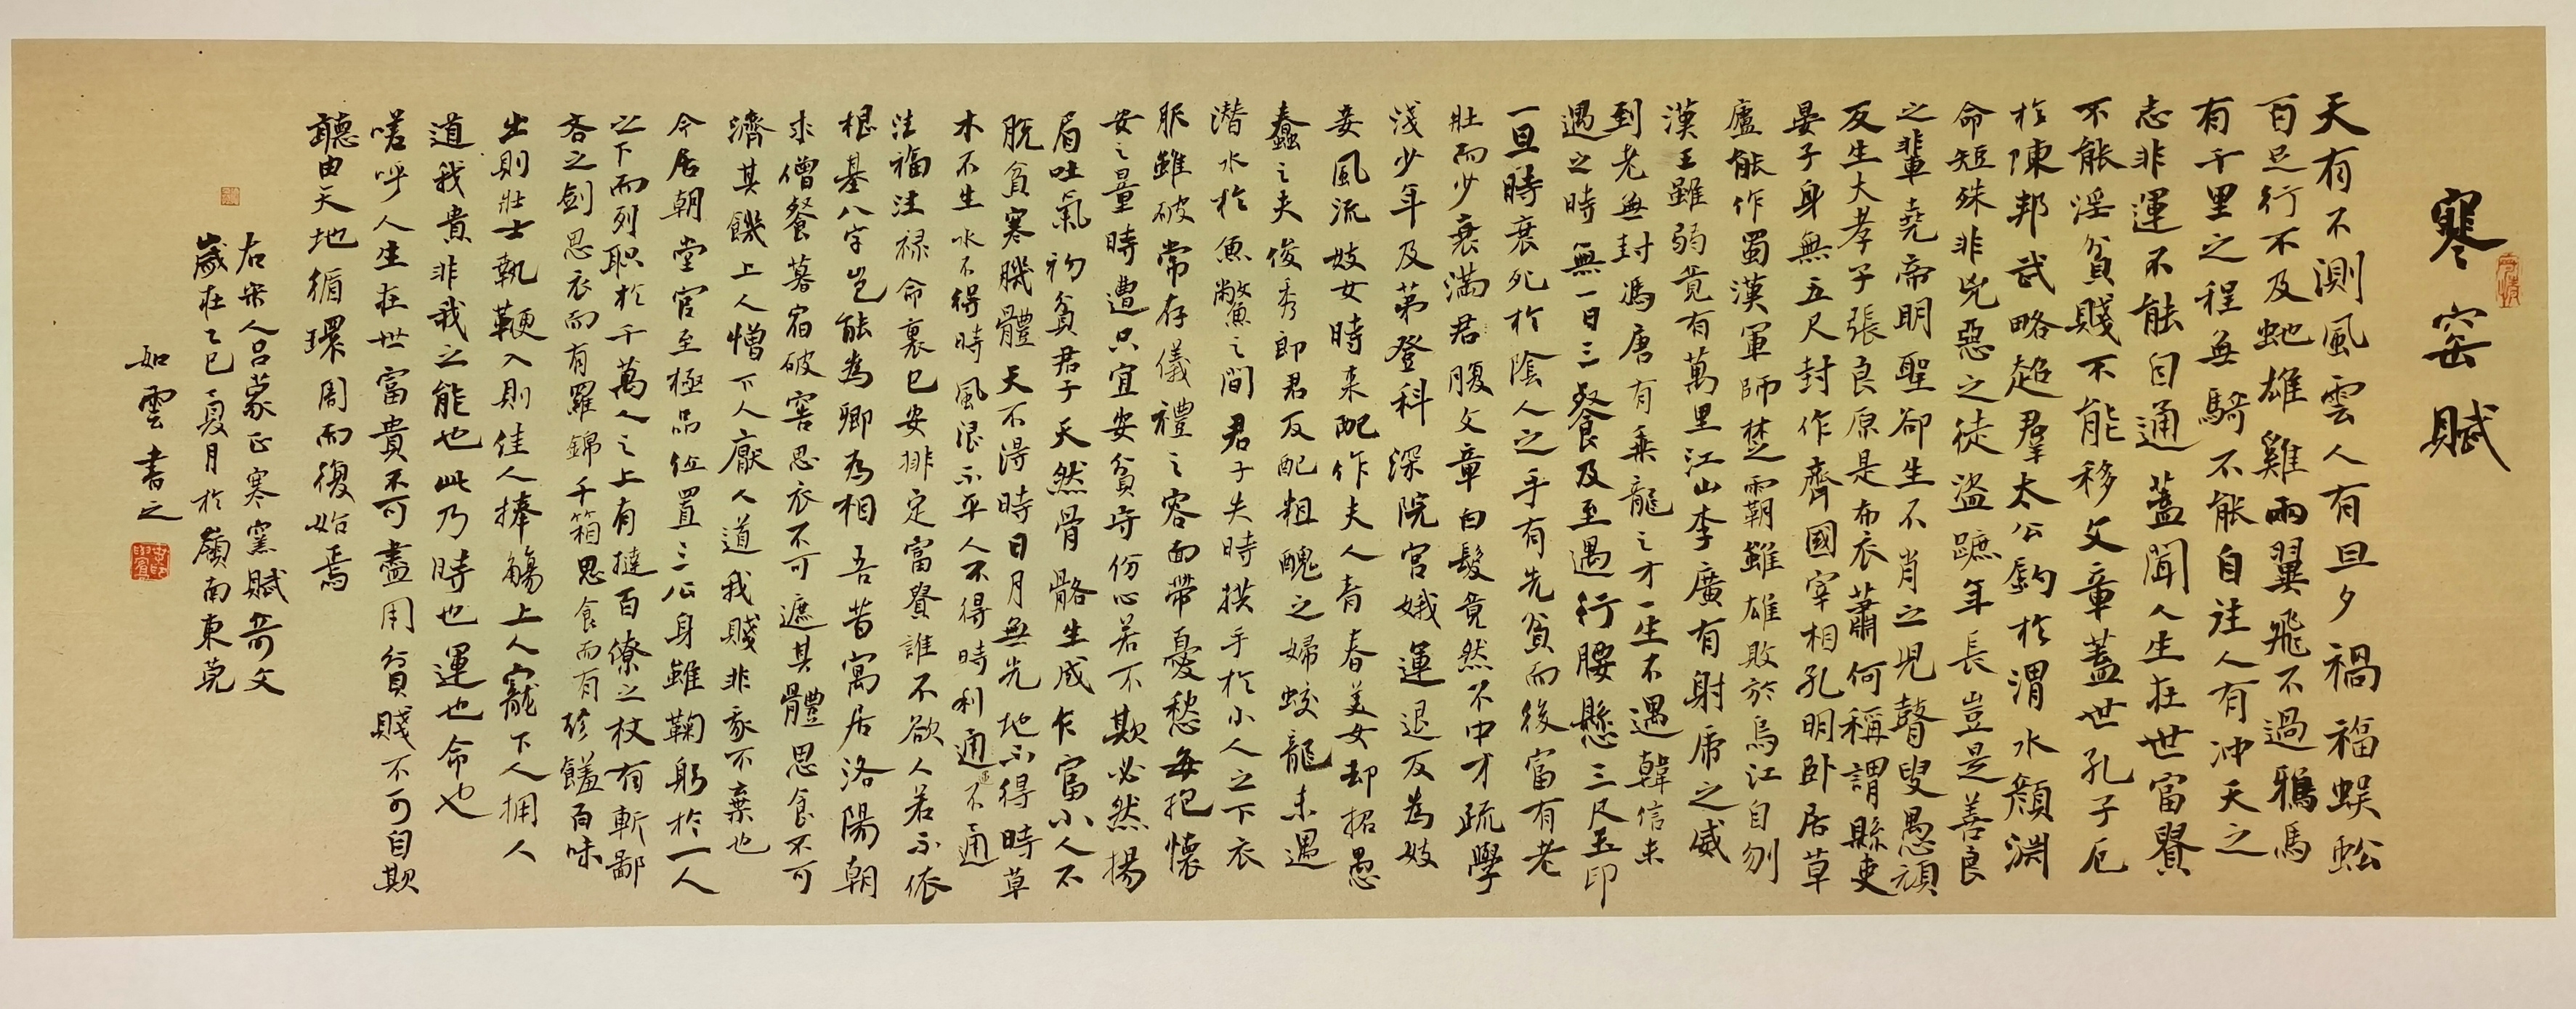 寒窑賦
天有不測風雲人有旦夕禍福蜈蚣
百足行不及虵雄雞兩翼飛不過鴉馬
有千里之程無騎不能自往人有冲天之
志非運不能自通蓋聞人生在世富貴
不能淫貧賤不能移文章蓋世孔子厄
於陳邦武略超羣太公釣於渭水顏淵
命短殊非兇惡之徒盜蹠年長豈是善良
之輩堯帝明聖卻生不肖之児瞽叟愚頑
反生大孝子張良原是布衣蕭何稱謂縣吏
晏子身無五尺封作齊國宰相孔明卧居草
廬能作蜀漢軍師楚霸雖雄敗於烏江自刎
漢王雖弱竟有萬里江山李廣有射虎之威
到老無封馮唐有乘龍之才一生不遇韓信未
遇之時無一日三餐及至遇行腰懸三尺玉印
一旦時衰死於陰人之手有先貧而後富有老
壯而少衰滿君腹文章白髮竟然不中才疏學
淺少年及第登科深院宮娥運退反為妓
妾風流妓女時來配作夫人青春美女却招愚
蠢之夫俊秀郎君反配粗醜之婦蛟龍未遇
潛水於魚鱉之間君子失時拱手於小人之下衣
服雖破常存儀禮之容面帶憂愁每抱懷
安之量時遭只宜安貧守份心若不欺必然揚
眉吐氣初貧君子天然骨骼生成乍富小人不
脫貧寒肌體天不得時日月無光地不得時草
木不生水不得時風浪不平人不得時利運不通
注福注祿命裏已安排定富貴誰不欲人若不依
根基八字豈能為卿為相吾昔寓居洛陽朝
求僧餐暮宿破窖思衣不可遮其體思食不可
濟其饑上人憎下人厭人道我賤非我不棄也
今居朝堂官至極品位置三公身雖鞠躬於一人
之下而列职於千萬人之上有撻百僚之杖有斬鄙
吝之劍思衣而有羅錦千箱思食而有珍饈百味
出則壯士執鞭入則佳人捧觴上人寵下人擁人
道我貴非我之能也此乃時也運也命也
嗟呼人生在世富貴不可盡用貧賤不可自欺
聽由天地循環周而復始焉
右宋人呂蒙正寒窯賦奇文
歲在乙巳夏月於嶺南東莞
如雲書之